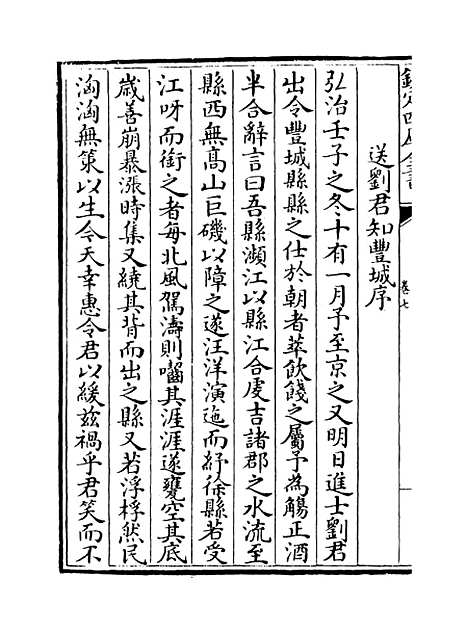 欽定四庫全書
卷七
送劉君知豐城序
弘治壬子之冬十有一月予至京之又明日進士劉君
出令豐城縣縣之仕於朝者萃飲餞之屬予為觴正酒
半合辭言曰吾縣瀕江以縣江合䖍吉諸郡之水流至
縣西無高山巨磯以障之遂汪洋演迤而紓徐縣若受
江呀而銜之者每北風駕濤則囓其涯涯遂甕空其底
歲善崩暴漲時集又繞其背而出之縣又若浮桴然民
洶洶無策以生今天幸惠令君以緩兹禍乎君笑而不